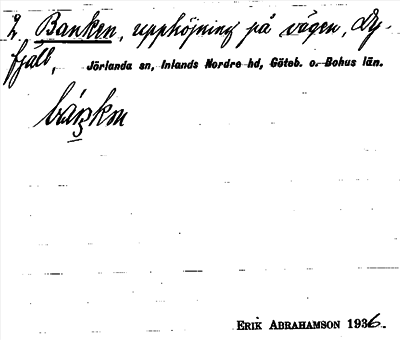 2 Banken, upphöjning på vägen, Dy-
fjäll,
Jörlanda sn, Inlands Nordre hd, Göteb. o. Bohus län.
ERIK ABRAHAMSON 1936.